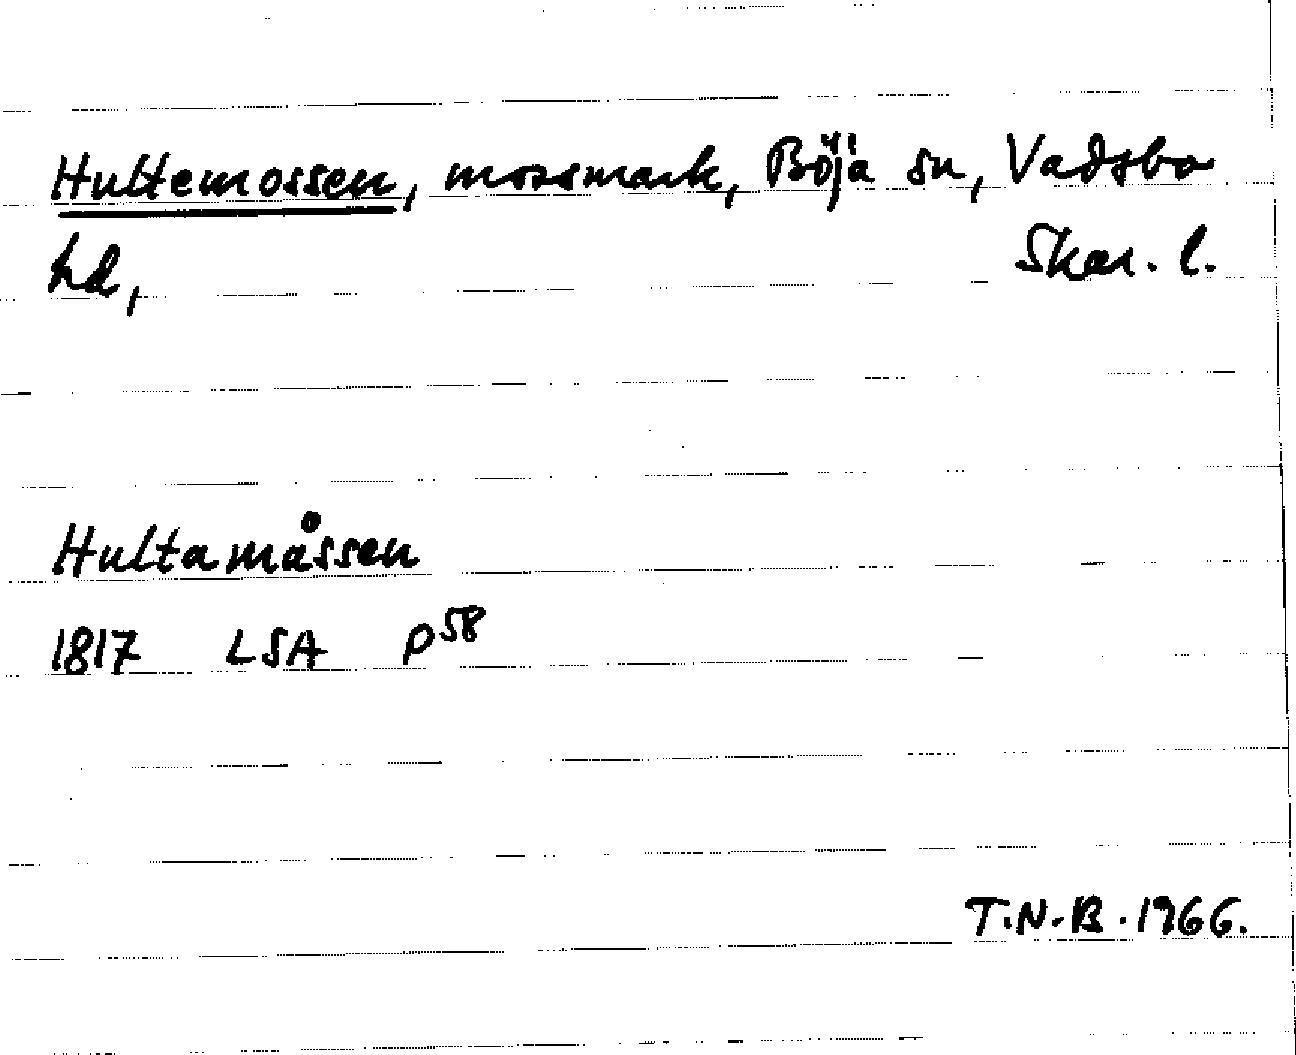 Hultemossen, mossmark, Böja sn, Vadsbo
hd, Skar. l.
Hultamåssen
1817 LSA P58
T.N.B. 1966.